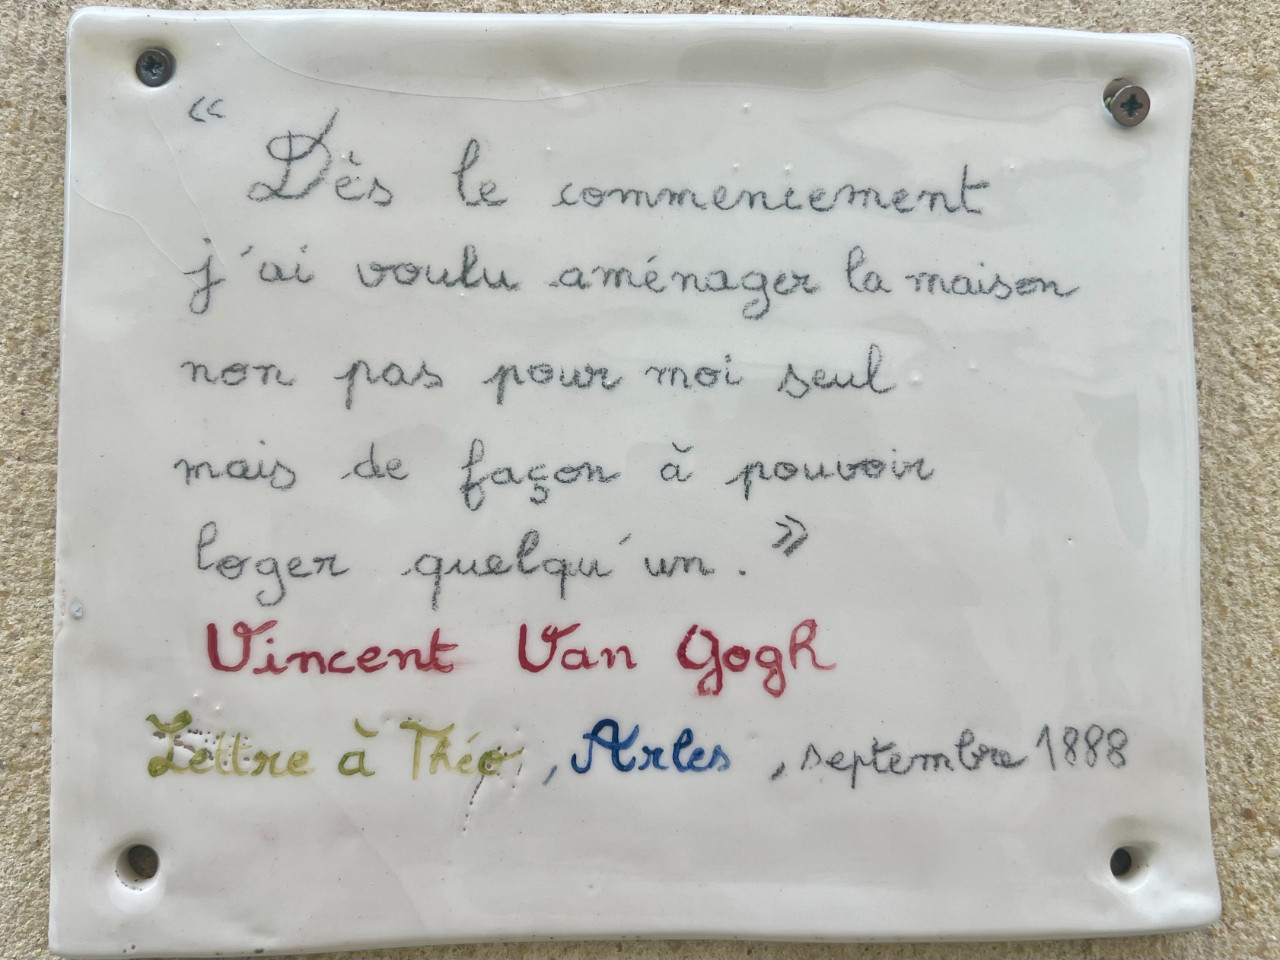 «
Dès le commencement
j'ai voulu aménager la maison
non pas pour moi seul
mais de façon à pouvoir
loger quelqu'un. »
Vincent Van Gogh
Lettre à Théo, Arles, septembre 1888